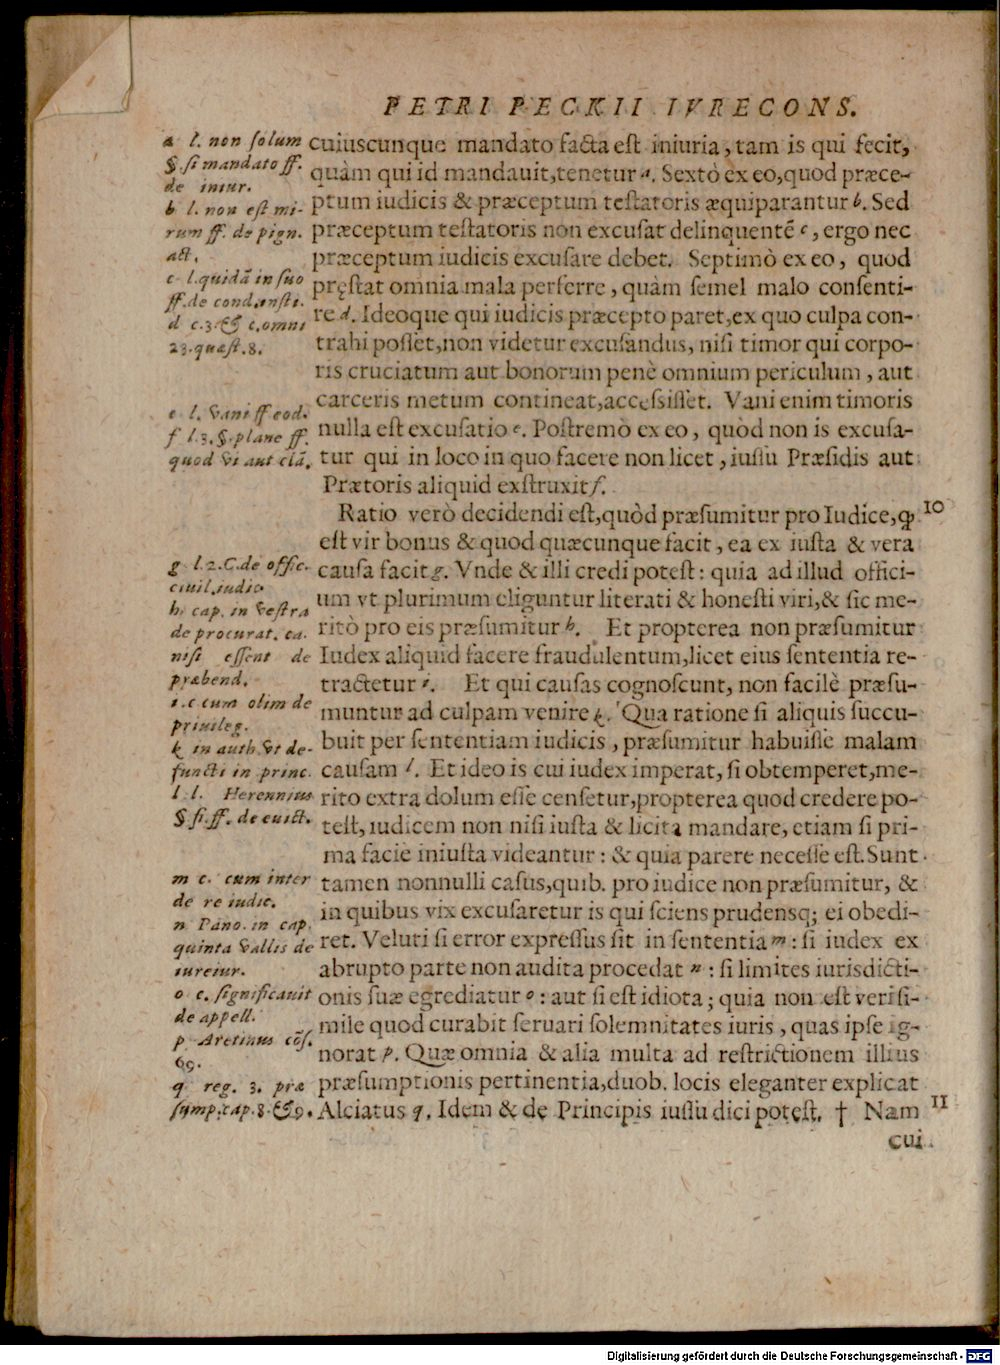 PETRI PECKII IVRECONS.
a l. non ſolum
§. ſi mandato ff.
de iniur.
b l. non eſt mi-
rum ff. de pign.
act.
c l. quidā in ſuo
ff. de cond. inſti.
d c. 3. & c. omni
23. quæſt. 8.
e l. Vani ff eod.
f l. 3. §. plane ff.
quod vi aut clā.
g l. 2. C. de offic.
ciuil. iudic.
h cap. in veſtra
de procurat. ca.
niſi eſſent de
præbend.
i c cum olim de
priuileg.
k in auth. vt de-
functi in princ.
l l. Herennius
§. ſi. ff. de euict.
m c. cum inter
de re iudic.
n Pano. in cap.
quinta vallis de
iureiur.
o c. ſignificauit
de appell.
p Aretinus cōſ.
69.
q reg. 3. præ
ſump. cap. 8. & 9.
cuiuscunque mandato facta eſt iniuria, tam is qui fecit,
quàm qui id mandauit, tenetur a. Sextò ex eo, quod præce-
ptum iudicis & præceptum teſtatoris æquiparantur b. Sed
præceptum teſtatoris non excuſat delinquentē c, ergo nec
præceptum iudicis excuſare debet. Septimò ex eo, quod
pręſtat omnia mala perferre, quàm ſemel malo conſenti-
re d. Ideoque qui iudicis præcepto paret, ex quo culpa con-
trahi poſſet, non videtur excuſandus, niſi timor qui corpo-
ris cruciatum aut bonorum penè omnium periculum, aut
carceris metum contineat, acceſsiſſet. Vani enim timoris
nulla eſt excuſatio e. Poſtremò ex eo, quòd non is excuſa-
tur qui in loco in quo facere non licet, iuſſu Præſidis aut
Prætoris aliquid exſtruxit f.
Ratio verò decidendi eſt, quòd præſumitur pro Iudice, ꝙ 10
eſt vir bonus & quod quæcunque facit, ea ex iuſta & vera
cauſa facit g. Vnde & illi credi poteſt: quia ad illud offici-
um vt plurimum eliguntur literati & honeſti viri, & ſic me-
ritò pro eis præſumitur h. Et propterea non præſumitur
Iudex aliquid facere fraudulentum, licet eius ſententia re-
tractetur i. Et qui cauſas cognoſcunt, non facilè præſu-
muntur ad culpam venire k. Qua ratione ſi aliquis ſuccu-
buit per ſententiam iudicis, præſumitur habuiſſe malam
cauſam l. Et ideo is cui iudex imperat, ſi obtemperet, me-
rito extra dolum eſſe cenſetur, propterea quod credere po-
teſt, iudicem non niſi iuſta & licita mandare, etiam ſi pri-
ma facie iniuſta videantur: & quia parere neceſſe eſt. Sunt
tamen nonnulli caſus, quib. pro iudice non præſumitur, &
in quibus vix excuſaretur is qui ſciens prudensq; ei obedi-
ret. Veluti ſi error expreſſus ſit in ſententia m: ſi iudex ex
abrupto parte non audita procedat n: ſi limites iurisdicti-
onis ſuæ egrediatur o: aut ſi eſt idiota; quia non eſt veriſi-
mile quod curabit ſeruari ſolemnitates iuris, quas ipſe ig-
norat p. Quæ omnia & alia multa ad reſtrictionem illius
præſumptionis pertinentia, duob. locis eleganter explicat
Alciatus q. Idem & de Principis iuſſu dici poteſt. † Nam 11
cui
Digitalisierung gefördert durch die Deutsche Forschungsgemeinschaft - DFG